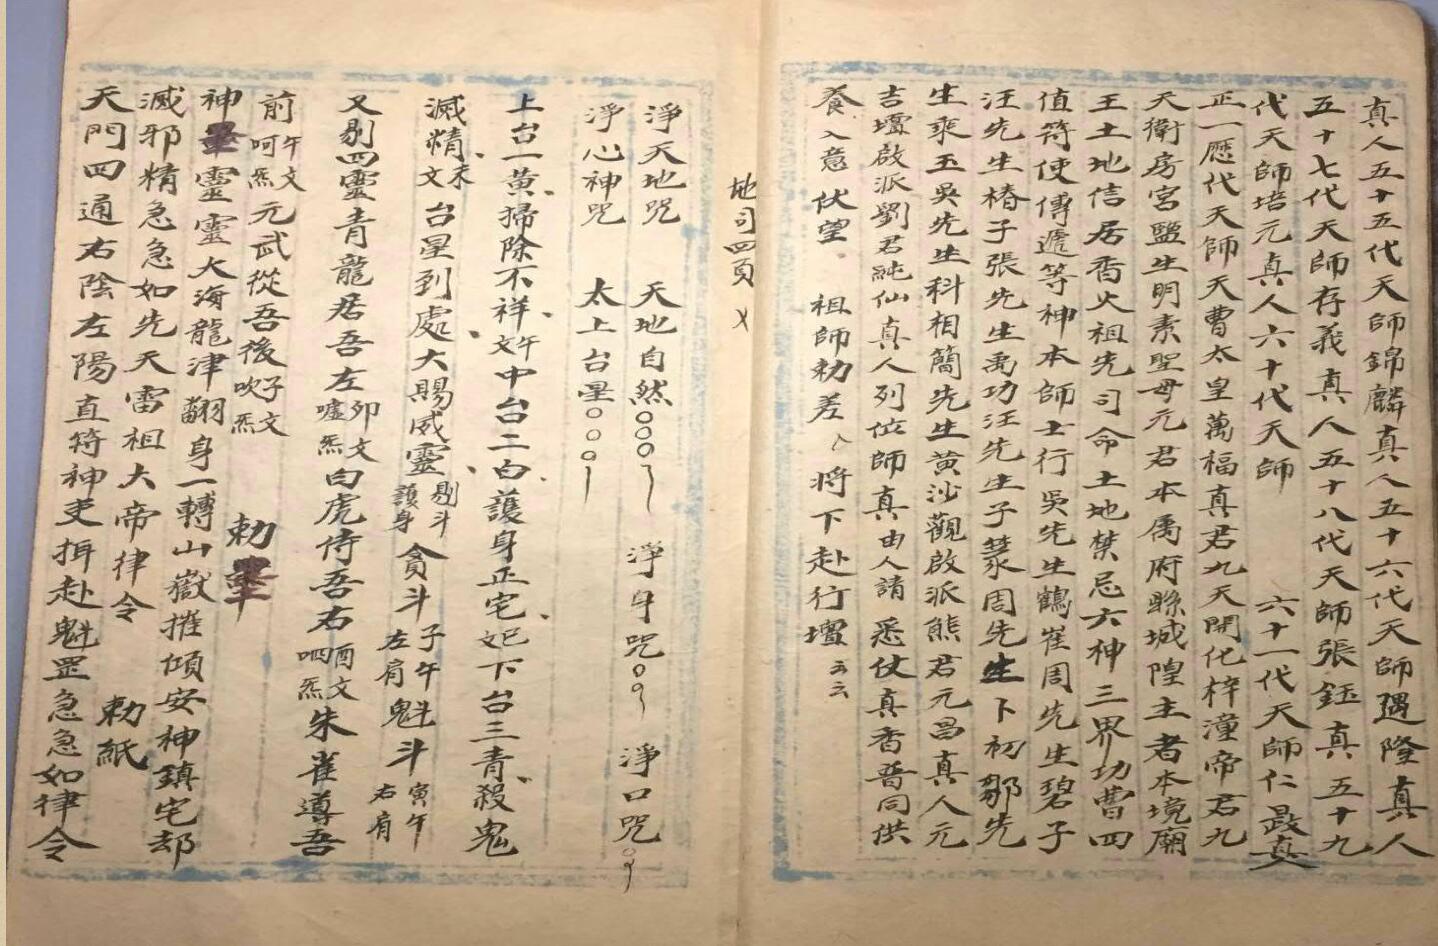 真人五十五代天師錦麟真人五十六代天師遇隆真人
五十七代天師存義真人五十八代天師張鈺真五十九
代天師培元真人六十代天師　六十一代天師仁晸真
正一歷代天師天曹太皇萬福真君九天開化梓潼帝君九
天衛房宮監生明素聖母元君本屬府縣城隍主者本境廟
王土地信居香火祖先司命土地禁忌六神三界功曹四
值符使傳遞等神本師士行吳先生鶴崔周先生碧子
汪先生椿子張先生禹功汪先生子篆周先生下初鄒先
生乘玉吳先生科相簡先生黄沙觀啟派熊君元昌真人元
吉壇啟派劉君純仙真人列位師真由人請悉仗真香普同供
養入意伏望　祖師勑差　將下赴行壇云云
地司四頁
淨天地咒　天地自然〇〇〇　淨身咒〇〇　淨口咒〇
淨心神咒　太上台星〇〇〇
上台一黄掃除不祥午文中台二白護身正宅巳文下台三青殺鬼
滅精未文台星到處大賜威靈剔斗護身貪斗子午左肩魁斗寅午右肩
又剔四靈青龍居吾左卯文噓炁白虎侍吾右酉文呬炁朱雀導吾
前午文呵炁元武從吾後子文吹炁　勅墨
神墨靈靈大海龍津翻身一轉山嶽摧傾安神鎮宅却
滅邪精急急如先天雷祖大帝律令　勅紙
天門四通右陰左陽直符神吏揖赴魁罡急急如律令